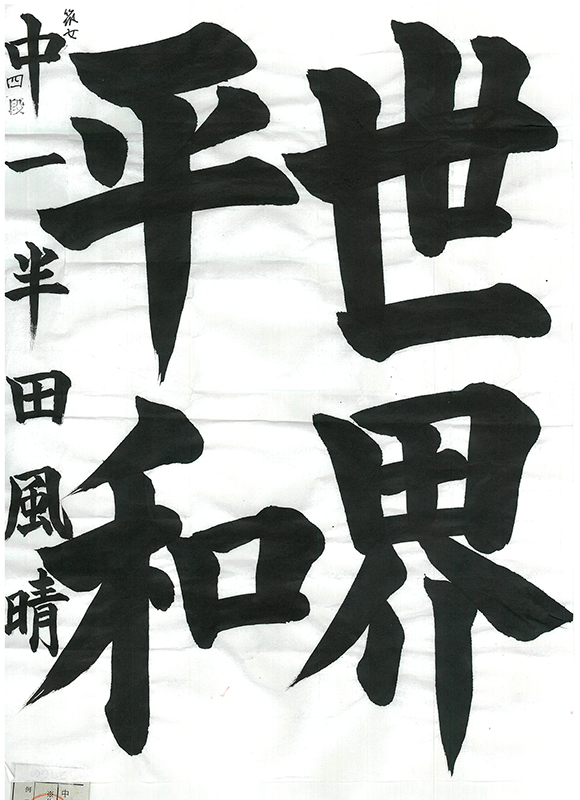 世界
平和
中一 半田風晴
四段